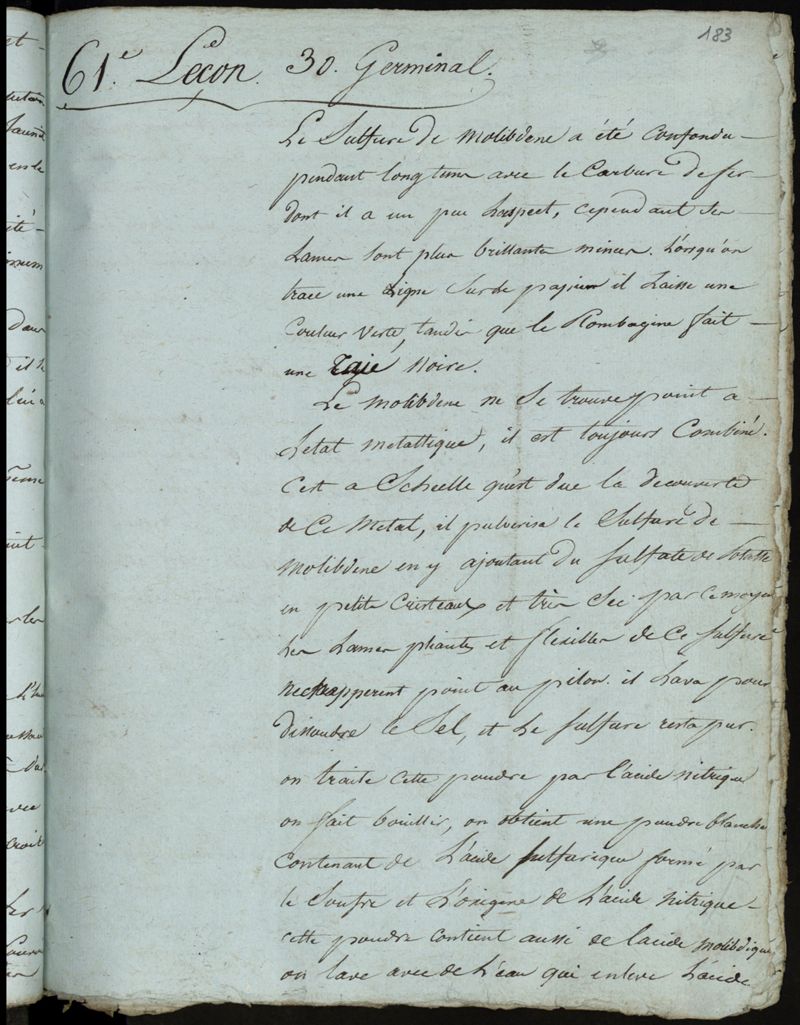 183
61.e Leçon. 30. Germinal.
Le Sulfure de Molibdene a été confondu
pendant longtems avec le Carbure de fer
dont il a un peu Laspect, cependant Ses
Lames sont plus brillantes minces. Lorsqu'on
trace une Ligne Sur le papier il Laisse une
Couleur verte, tandis que le Plombagine fait
une raie Noire.
Le Molibdene ne Se trouve point a
Letat metallique, il est toujours Combiné.
C'est a Scheelle qu'est due la decouverte
de Ce Metal, il pulverisa le Sulfure de
Molibdene en y ajoutant du Sulfate de Potasse
en petits Cristeaux et très Sec par ce moyen
Les Lames pliantes et flexilles de Ce Sulfure
Nechapperent point au pilon. il Lava pour
dissoudre le Sel, et Le Sulfure resta pur.
on traite Cette poudre par L'acide Nitrique
on fait bouillir, on obtient une poudre blanche
Contenant de L'acide Sulfurique formé par
le Soufre et L'oxigene de L'acide Nitrique
cette poudre contient aussi de lacide Molibdique
on lave avec de L'eau qui enleve L'acide